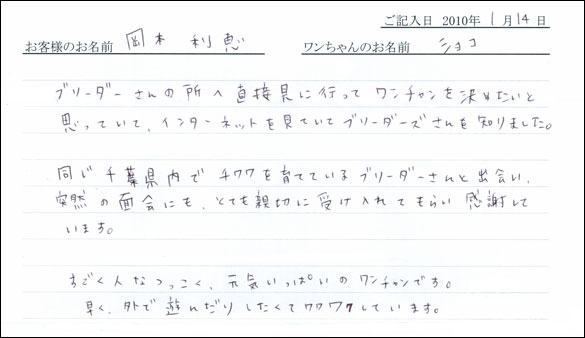 ご記入日 2010年 1月14日
お客様のお名前 岡本 利恵 ワンちゃんのお名前 ショコ
ブリーダーさんの所へ直接見に行ってワンチャンを決めたいと
思っていて、インターネットを見ていてブリーダーズさんを知りました。
同じ千葉県内でチワワを育てているブリーダーさんと出会い、
突然の面会にも、とても親切に受け入れてもらい感謝して
います。
すごく人なつっこく、元気いっぱいのワンチャンです。
早く、外で遊んだりしたくてワクワクしています。